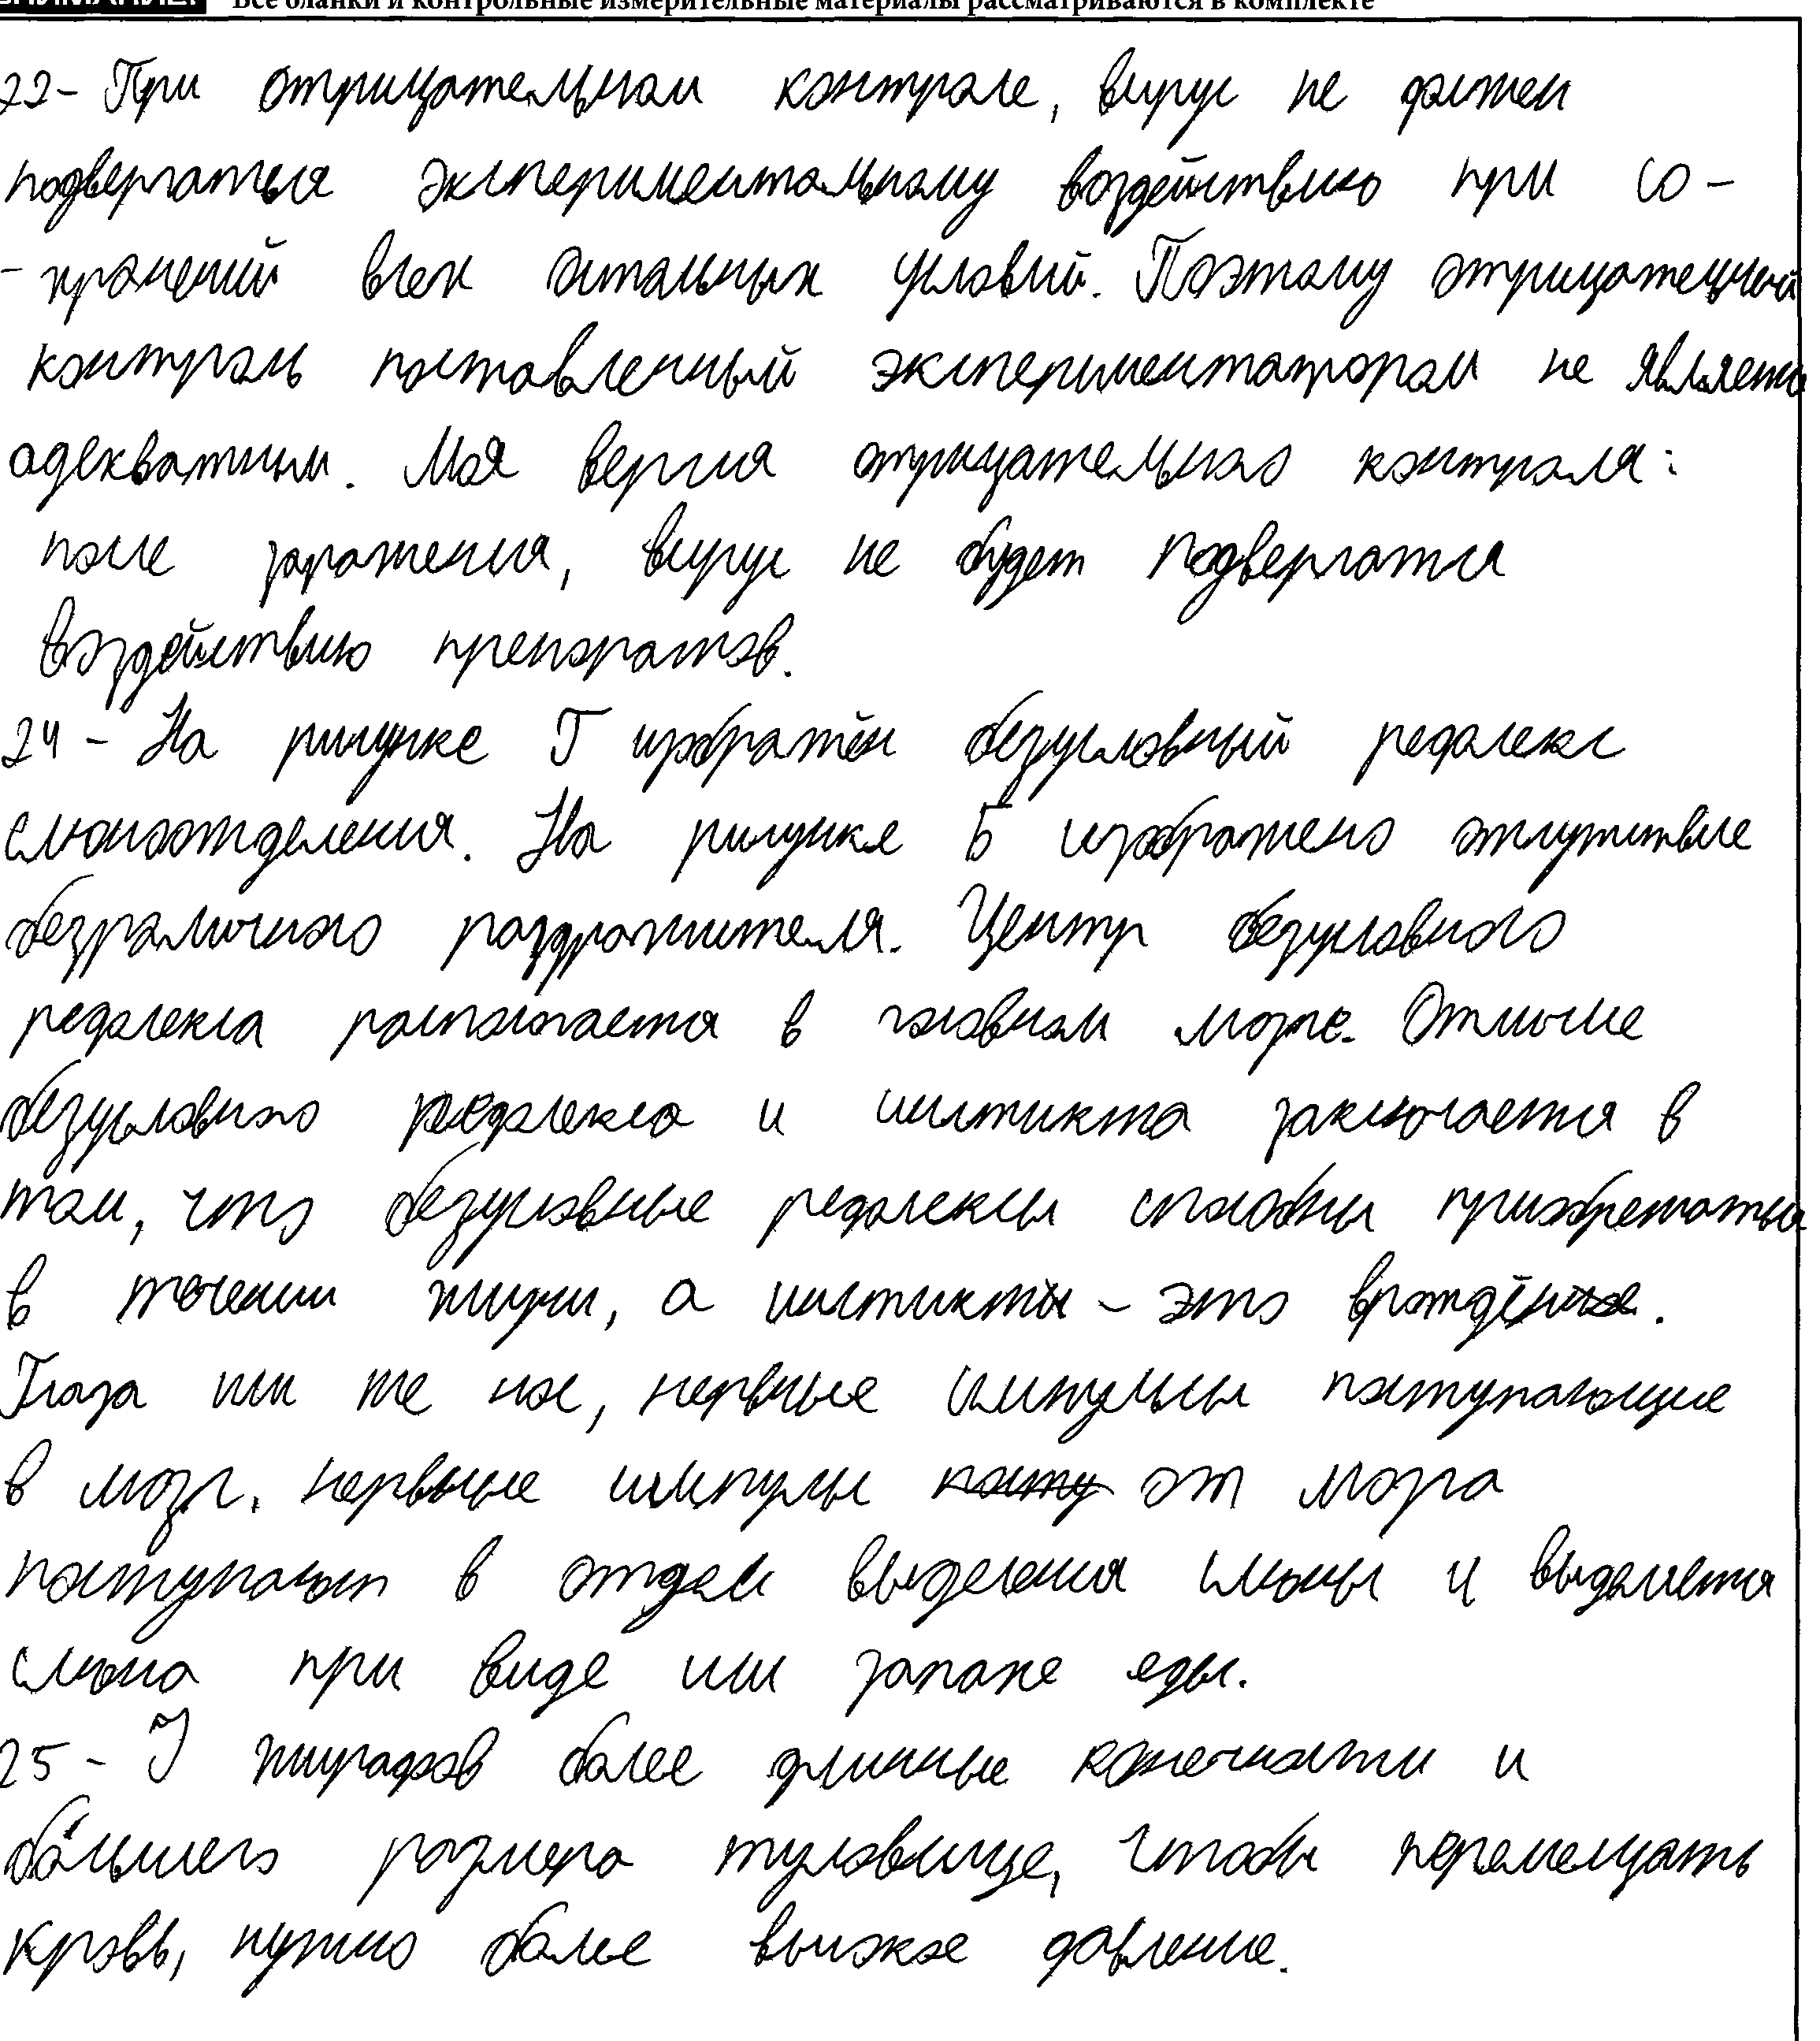 Все бланки и контрольные измерительные материалы рассматриваются в комплекте
22- При отрицательном контроле, вирус не должен
подвергаться экспериментальному воздействию при со-
-хранений всех остальных условий. Поэтому отрицательный
контроль поставленный экспериментатором не является
адекватным. Моя версия отрицательного контроля:
после заражения, вирус не будет подвергаться
воздействию препаратов.
24- На рисунке Г изображён безусловный рефлекс
слюноотделения. На рисунке Б изображено отсутствие
безразличного раздражителя. Центр безусловного
рефлекса располагается в головном мозге. Отличие
безусловного рефлекса и инстикта заключается в
том, что безусловные рефлексы способны приобретаться
в течении жизни, а инстикты - это врождённое.
Глаза или же нос, нервные импульсы поступающие
в мозг, нервные импулсы от мозга
поступают в отдел выделения слюны и выделяется
слюна при виде или запахе еды.
25- У жирафов более длинные конечности и
большего размера туловище, чтобы перемещать
кровь, нужно более высокое давление.